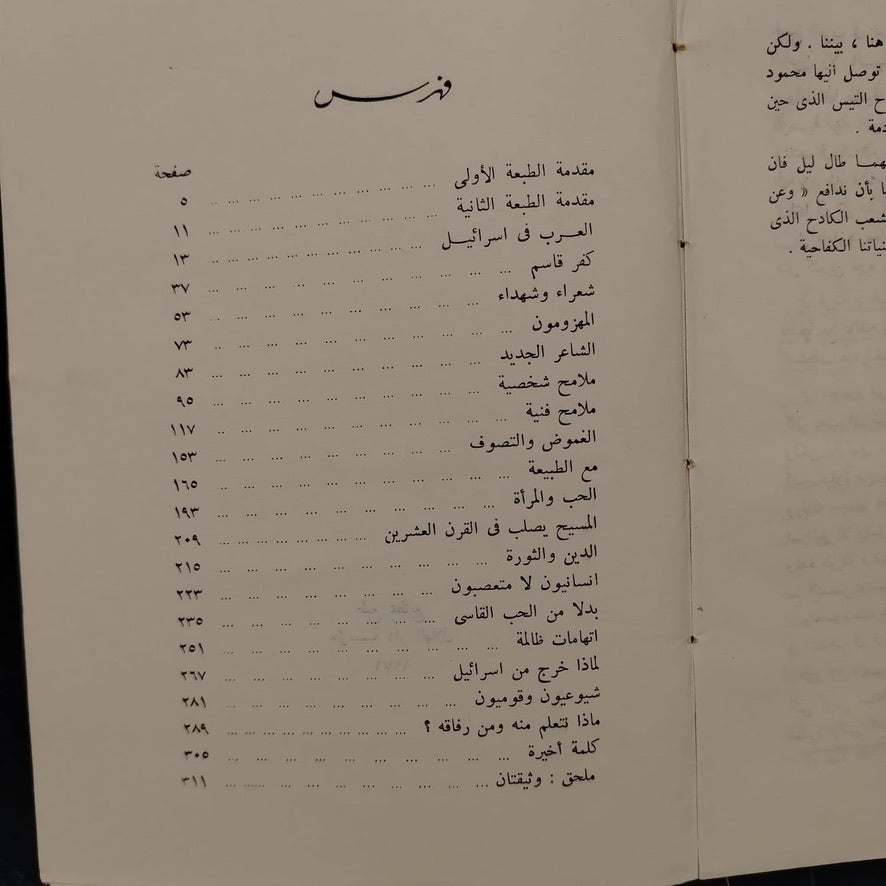 هنا ، بيننا . ولكن
توصل أنيها محمود
ح التيس الذى حين
دمة .
هما طال ليل فان
ا بأن ندافع « وعن
شعب الكادح الذى
نياتنا الكفاحية .
فهرس
صفحة
مقدمة الطبعة الأولى ... ٥
مقدمة الطبعة الثانية ... ١١
العرب فى اسرائيل ... ١٣
كفر قاسم ... ٣٧
شعراء وشهداء ... ٥٣
المهزومون ... ٧٣
الشاعر الجديد ... ٨٣
ملامح شخصية ... ٩٥
ملامح فنية ... ١١٧
الغموض والتصوف ... ١٥٣
مع الطبيعة ... ١٦٥
الحب والمرأة ... ١٩٣
المسيح يصلب فى القرن العشرين ... ٢٠٩
الدين والثورة ... ٢١٥
انسانيون لا متعصبون ... ٢٢٣
بدلا من الحب القاسى ... ٢٣٥
اتهامات ظالمة ... ٢٥١
لماذا خرج من اسرائيل ... ٢٦٧
شيوعيون وقوميون ... ٢٨١
ماذا نتعلم منه ومن رفاقه ؟ ... ٢٨٩
كلمة أخيرة ... ٣٠٥
ملحق : وثيقتان ... ٣١١